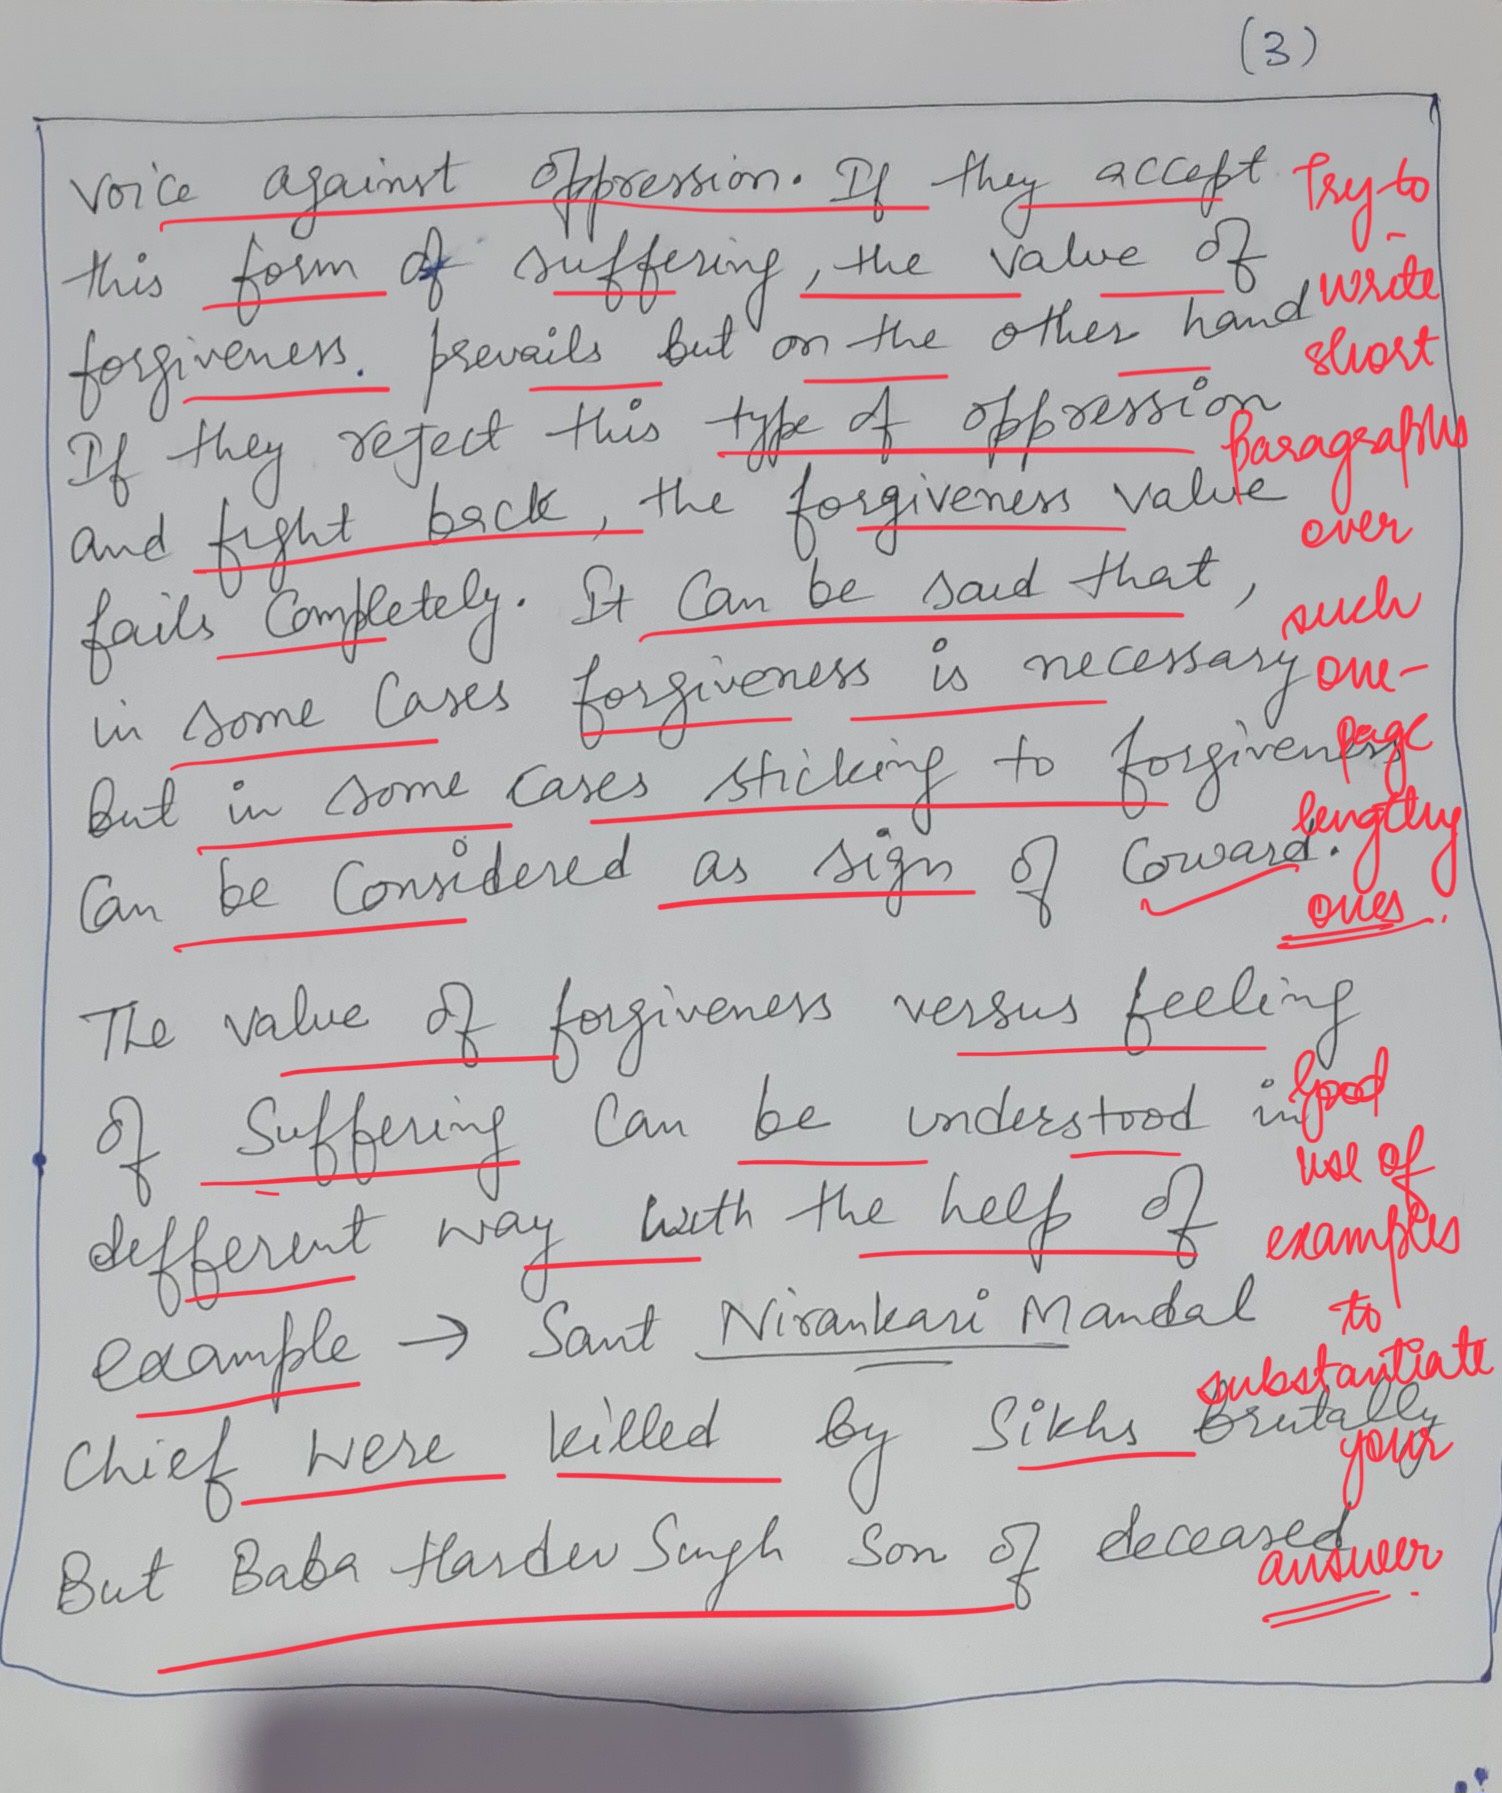 (3)
voice against oppression. If they accept
this form of suffering, the value of
forgiveness. prevails but on the other hand
If they reject this type of oppression
and fight back, the forgiveness value
fails completely. It can be said that,
in some cases forgiveness is necessary
but in some cases sticking to forgiveness
can be considered as sign of coward.
The value of forgiveness versus feeling
of suffering can be understood in
defferent way with the help of
example → Sant Nirankari Mandal
chief were killed by Sikhs brutally
But Baba Hardev Singh son of deceased
Try to
write
short
paragraphs
over
such
one-
page
lengthy
ones.
Good
use of
examples
to
substantiate
your
answer.